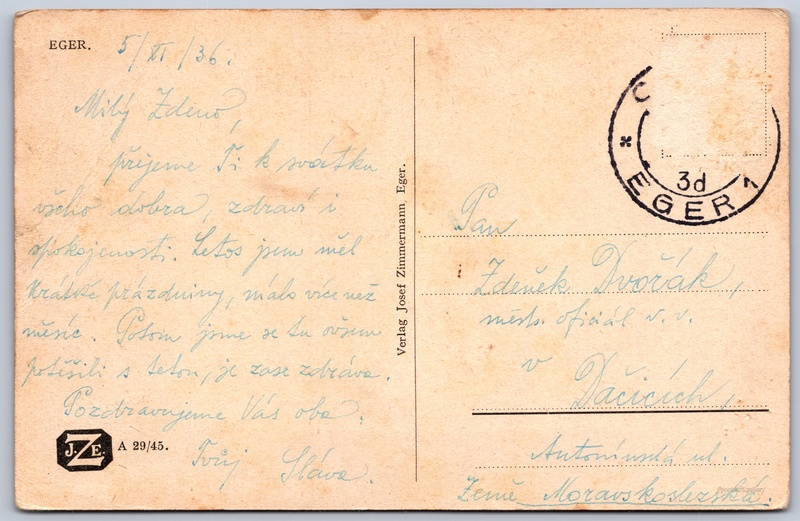 EGER.
5/XI/36.
Milý Zdeno,
přejeme Ti k svátku
všeho dobra, zdraví i
spokojenosti. Letos jsem měl
krátké prázdniny, málo více než
měsíc. Potom jsme se tu ovšem
potěšili s tetou, je zase zdráva.
Pozdravujeme Vás oba.
Tvůj Sláva.
J. Z. E.
A 29/45.
Verlag Josef Zimmermann, Eger.
C
* EGER 1
3d
Pan
Zdeněk Dvořák,
měst. oficiál v. v.
v
Dačicích,
Antonínská ul.
Země Moravskoslezská.